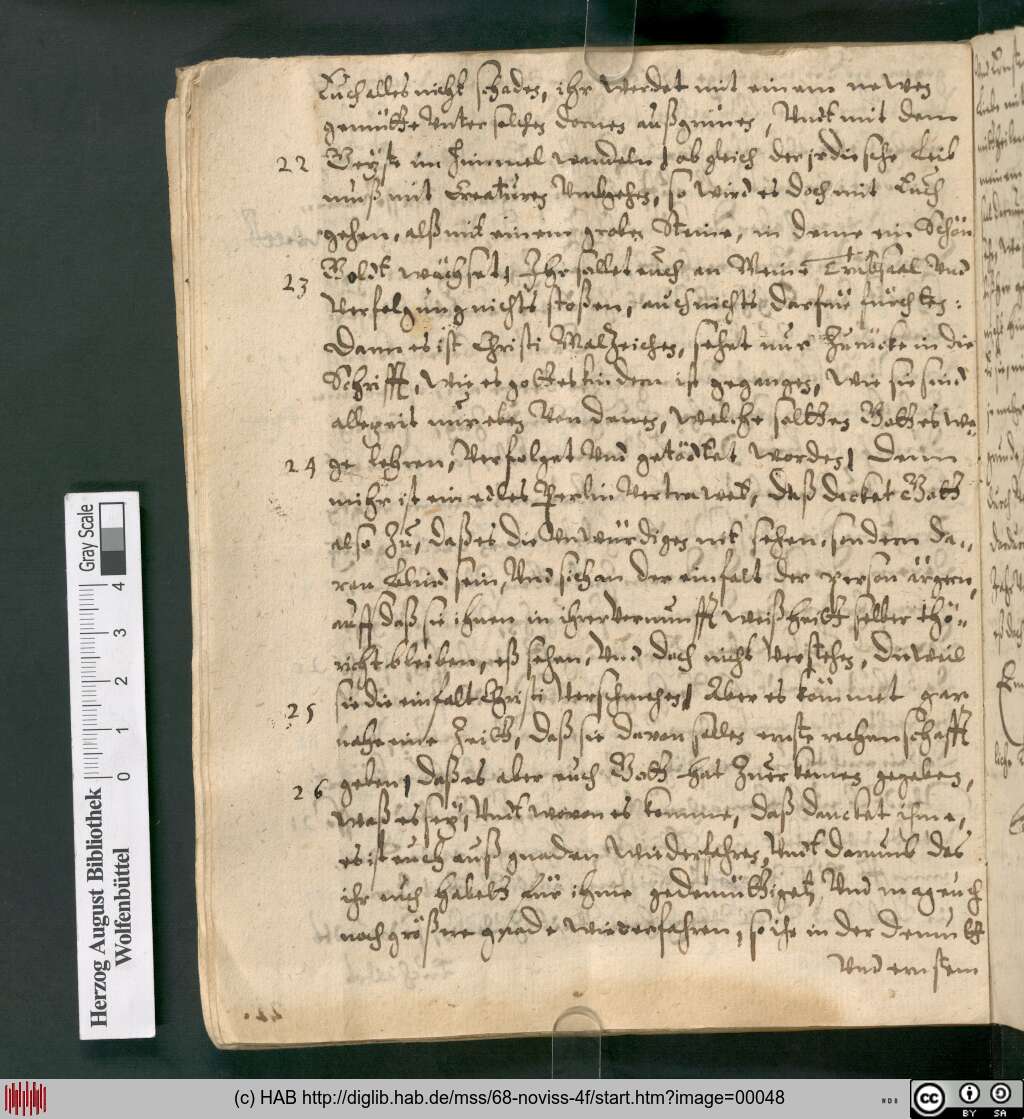 Euch alles nicht schaden, ihr werdet mit einem newen
gemütte unter solchen dornen außgrünen, Undt mit dem
22 Geyste im Himmel wandeln, ob gleich der jrdische Leib
muß mit Creaturen umbgehen, so wird es doch mit Euch
gehen, alß mit einem groben Steine, in deme ein Schön
23 Goldt wächset, Ihr sollet euch an Meine Trübsaal und
Verfolgung nichts stoßen, auch nichts darfür fürchten:
Dann es ist Christi Malzeichen, sehet nur zurücke in die
Schrifft, wie es gotteskindern ist gegangen, wie sie sind
allezeit nur eben von denen, welche solthen Gottes We,
24 ge lehren, Verfolget und getödtet worden, Denn
mihr ist ein edles Perlin vertrawet, daß decket Gott
also zu, daß es die Unwürdigen nit sehen, sondern da,,
ran blind sein, Und sich an der einfalt der person ärgern,
auff daß sie ihnen in ihrer vernunfft weißheitt selber thö,,
richt bleiben, eß sehen, und doch nicht verstehen, dieweil
25 sie die einfalt Christi verschmehen, Aber es kömmet gar
nahe eine Zeitt, daß sie davon sollen ernste rechenschafft
26 geben, daß es aber euch Gott hat zu erkennen gegeben,
Waß es sey, Undt wovon es komme, daß dancket ihme,
es ist euch auß gnaden wiederfahren, Undt darumb das
ihr euch habett für ihme gedemüttiget, Und mag euch
noch größere gnade wiederfahren, so ihr in der demutt
und ernstem
Herzog August Bibliothek
Wolfenbüttel
0 1 2 3 4
Gray Scale
(c) HAB http://diglib.hab.de/mss/68-noviss-4f/start.htm?image=00048
cc BY SA